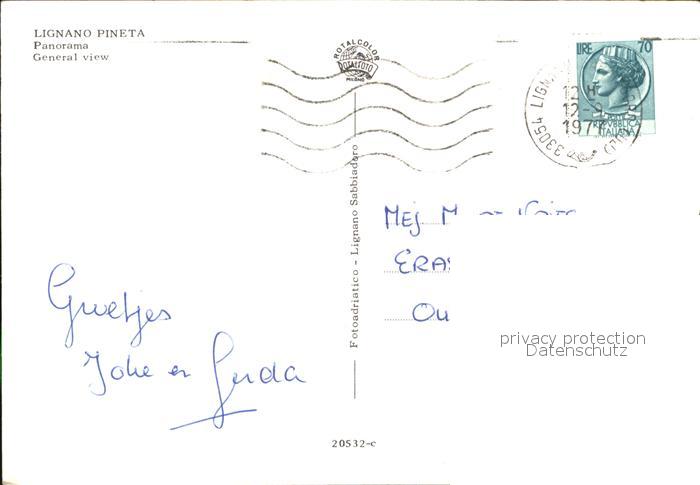 LIGNANO PINETA
Panorama
General view
ROTALCOLOR
ROTALFOTO
MILANO
LIRE 70
REPVBBLICA
ITALIANA
33054 LIGN
12H
12-9
197
Fotoadriatico - Lignano Sabbiadoro
MEJ M
ERA
Ou
Groetjes
Joke en Gerda
privacy protection
Datenschutz
20532-c